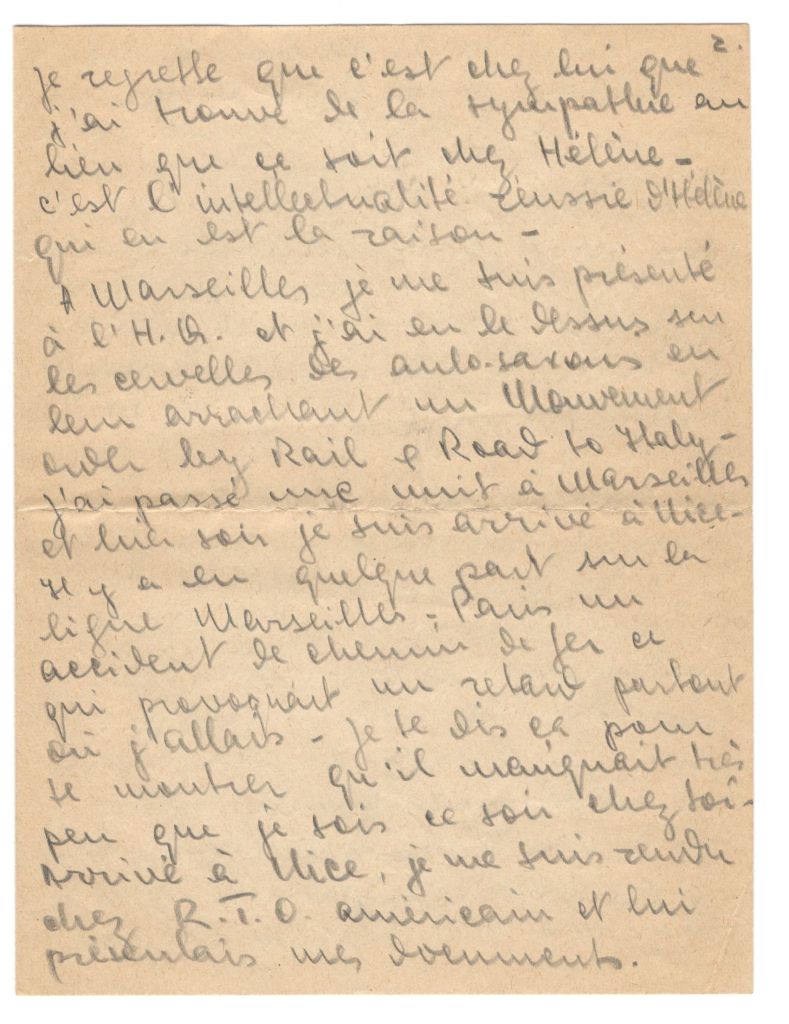 2.
je regrette que c'est chez lui que
j'ai trouvé de la sympathie au
lieu que ce soit chez Hélène -
c'est l'intellectualité réussie d'Hélène
qui en est la raison -
A Marseilles je me suis présenté
à l'H.Q. et j'ai eu le dessus sur
les cervelles des anlo-saxons en
leur arrachant un Mouvement
order by Rail & Road to Italy -
j'ai passé une nuit à Marseilles
et hier soir je suis arrivé à Nice -
Il y a eu quelque part sur la
ligne Marseilles - Paris un
accident de chemin de fer ce
qui provoquait un retard partout
où j'allais - je te dis ça pour
te montrer qu'il manquait très
peu que je sois ce soir chez toi -
Arrivé à Nice, je me suis rendu
chez R.T.O. américain et lui
présentais mes documents.